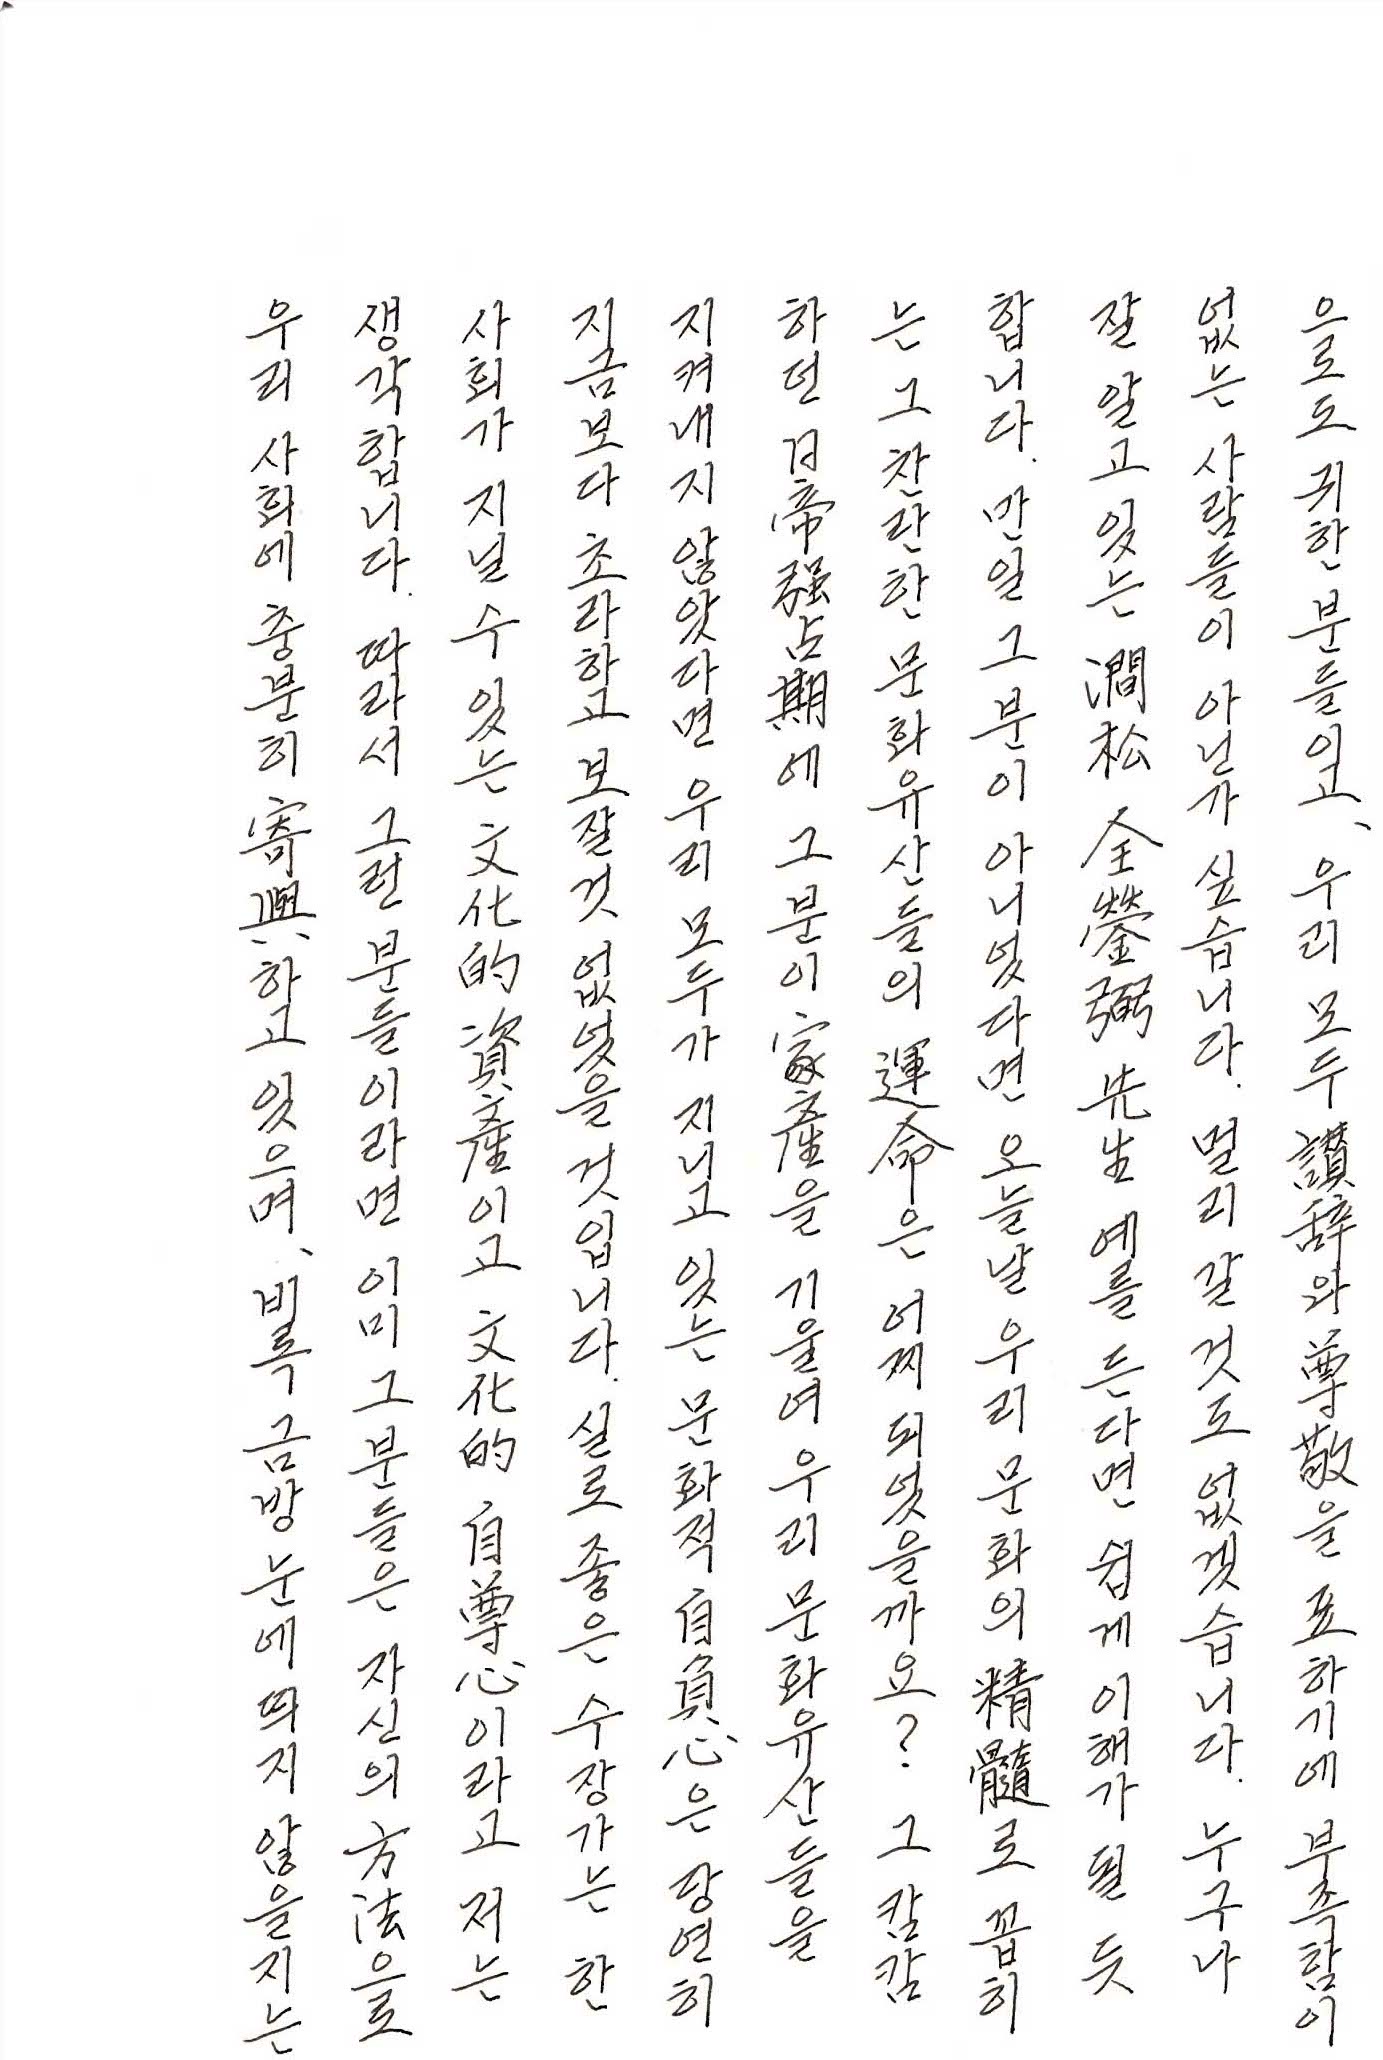 으로도 귀한 분들이고、우리 모두 讃辞와 尊敬을 표하기에 부족함이
없는 사람들이 아닌가 싶습니다. 멀리 갈 것도 없겠습니다. 누구나
잘 알고 있는 澗松 全鎣弼 先生 예를 든다면 쉽게 이해가 될 듯
합니다. 만일 그 분이 아니었다면 오늘날 우리 문화의 精髓로 꼽히
는 그 찬란한 문화유산들의 運命은 어찌 되었을까요? 그 캄캄
하던 日帝强占期에 그 분이 家産을 기울여 우리 문화유산들을
지켜내지 않았다면 우리 모두가 지니고 있는 문화적 自負心은 당연히
지금보다 초라하고 보잘것 없었을 것입니다. 실로 좋은 수장가는 한
사회가 지닐 수 있는 文化的 資産이고 文化的 自尊心이라고 저는
생각합니다. 따라서 그런 분들이라면 이미 그분들은 자신의 方法으로
우리 사회에 충분히 寄興하고 있으며、비록 금방 눈에 띄지 않을지는